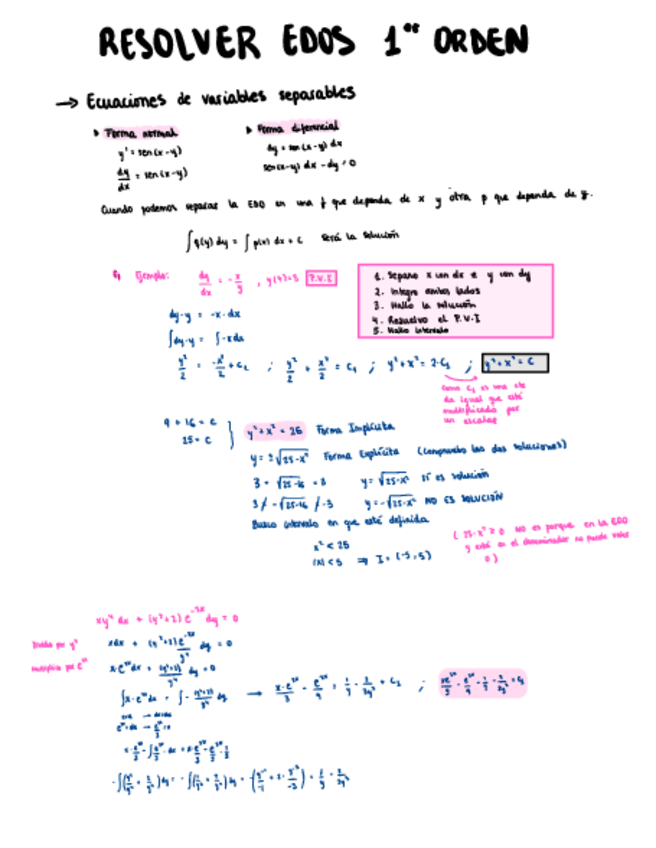 RESOLVER EDOS 1er ORDEN
→ Ecuaciones de variables separables
Forma normal
y' = sen(x-y)
dy/dx = sen(x-y)
Forma diferencial
dy = sen(x-y) dx
sen(x-y) dx - dy = 0
Cuando podemos separar la EDO en una f que dependa de x y otra p que dependa de y.
∫q(y) dy = ∫p(x) dx + C será la solución
Ejemplo: dy/dx = -x/y , y(4)=3 P.V.I
1. Separo x con dx e y con dy
2. Integro ambos lados
3. Hallo la solución
4. Resuelvo el P.V.I
5. Hallo intervalo
dy·y = -x·dx
∫dy·y = ∫-xdx
y²/2 = -x²/2 + C₁ ; y²/2 + x²/2 = C₁ ; y²+x² = 2·C₁ ; y²+x² = C
como C₁ es una cte
da igual que esté
multiplicada por
un escalar
9 + 16 = C
25 = C
y²+x² = 25 Forma Implícita
y = ±√25-x² Forma Explícita (compruebo las dos soluciones)
3 = √25-16 = 3 y = √25-x² SÍ es solución
3 ≠ -√25-16 ≠ -3 y = -√25-x² NO ES SOLUCIÓN
Busco intervalo en que esté definida
x² < 25
|x| < 5 ⇒ I = (-5,5)
( 25-x² ≥ 0 NO es porque en la EDO
y está en el denominador no puede valer
0)
xy⁴ dx + (y²+2) e^-3x dy = 0
Divido por y⁴
xdx + (y²+2)e^-3x/y⁴ dy = 0
multiplico por e^3x
x·e^3x dx + (y²+2)/y⁴ dy = 0
∫x·e^3x dx = ∫-(y²+2)/y⁴ dy → x·e^3x/3 - e^3x/9 = 1/y + 2/3y³ + C₁ ;